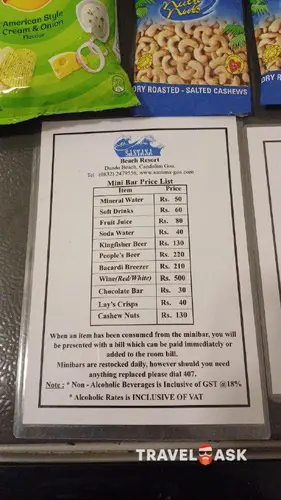 American Style
Cream & Onion
Flavour
Nutty
DRY ROASTED - SALTED CASHEWS
DRY ROASTED
Beach Resort
Dando Beach, Candolim Goa.
Mini Bar Price List
Item Price
Mineral Water Rs. 50
Soft Drinks Rs. 60
Fruit Juice Rs. 80
Soda Water Rs. 40
Kingfisher Beer Rs. 130
People's Beer Rs. 220
Bacardi Breezer Rs. 210
Wine(Red/White) Rs. 500
Chocolate Bar Rs. 30
Lay's Crisps Rs. 40
Cashew Nuts Rs. 130
When an item has been consumed from the minibar, you will
be presented with a bill which can be paid immediately or
added to the room bill.
Minibars are restocked daily, however should you need
anything replaced please dial 407.
Note : * Non - Alcoholic Beverages is Inclusive of GST @18%
* Alcoholic Rates is INCLUSIVE OF VAT
TRAVEL ASK